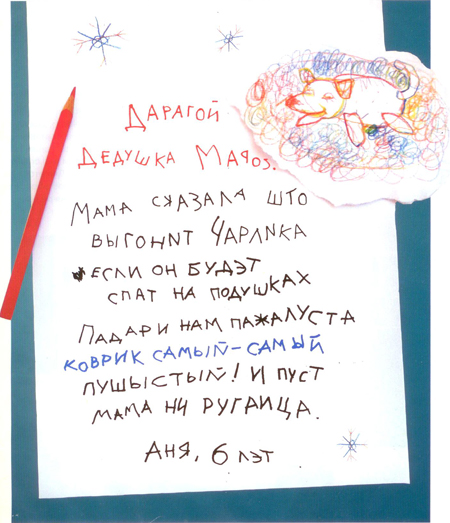 ДАРАГОЙ
ДЕДУШКА МАРОЗ.
МАМА СКАЗАЛА ШТО
ВЫГОНИТ ЧАРЛИКА
ЕСЛИ ОН БУДЭТ
СПАТ НА ПОДУШКАХ
ПАДАРИ НАМ ПАЖАЛУСТА
КОВРИК САМЫЙ-САМЫЙ
ПУШЫСТЫЙ! И ПУСТ
МАМА НИ РУГАИЦА.
АНЯ, 6 ЛЭТ